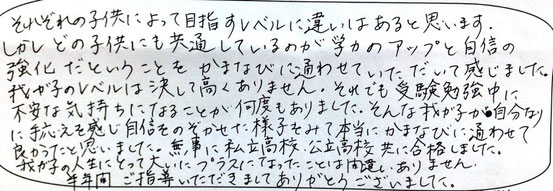 それぞれの子供によって目指すレベルに違いはあると思います。
しかしどの子供にも共通しているのが学力のアップと自信の
強化だということをかまなびに通わせていただいて感じました。
我が子のレベルは決して高くありません。それでも受験勉強中に
不安な気持ちになることが何度もありました。そんな我が子が自分なり
に手応えを感じ自信をのぞかせた様子をみて本当にかまなびに通わせて
良かったと思いました。無事に私立高校、公立高校共に合格しました。
我が子の人生にとって大いにプラスになったことは間違いありません。
半年間ご指導いただきましてありがとうございました。